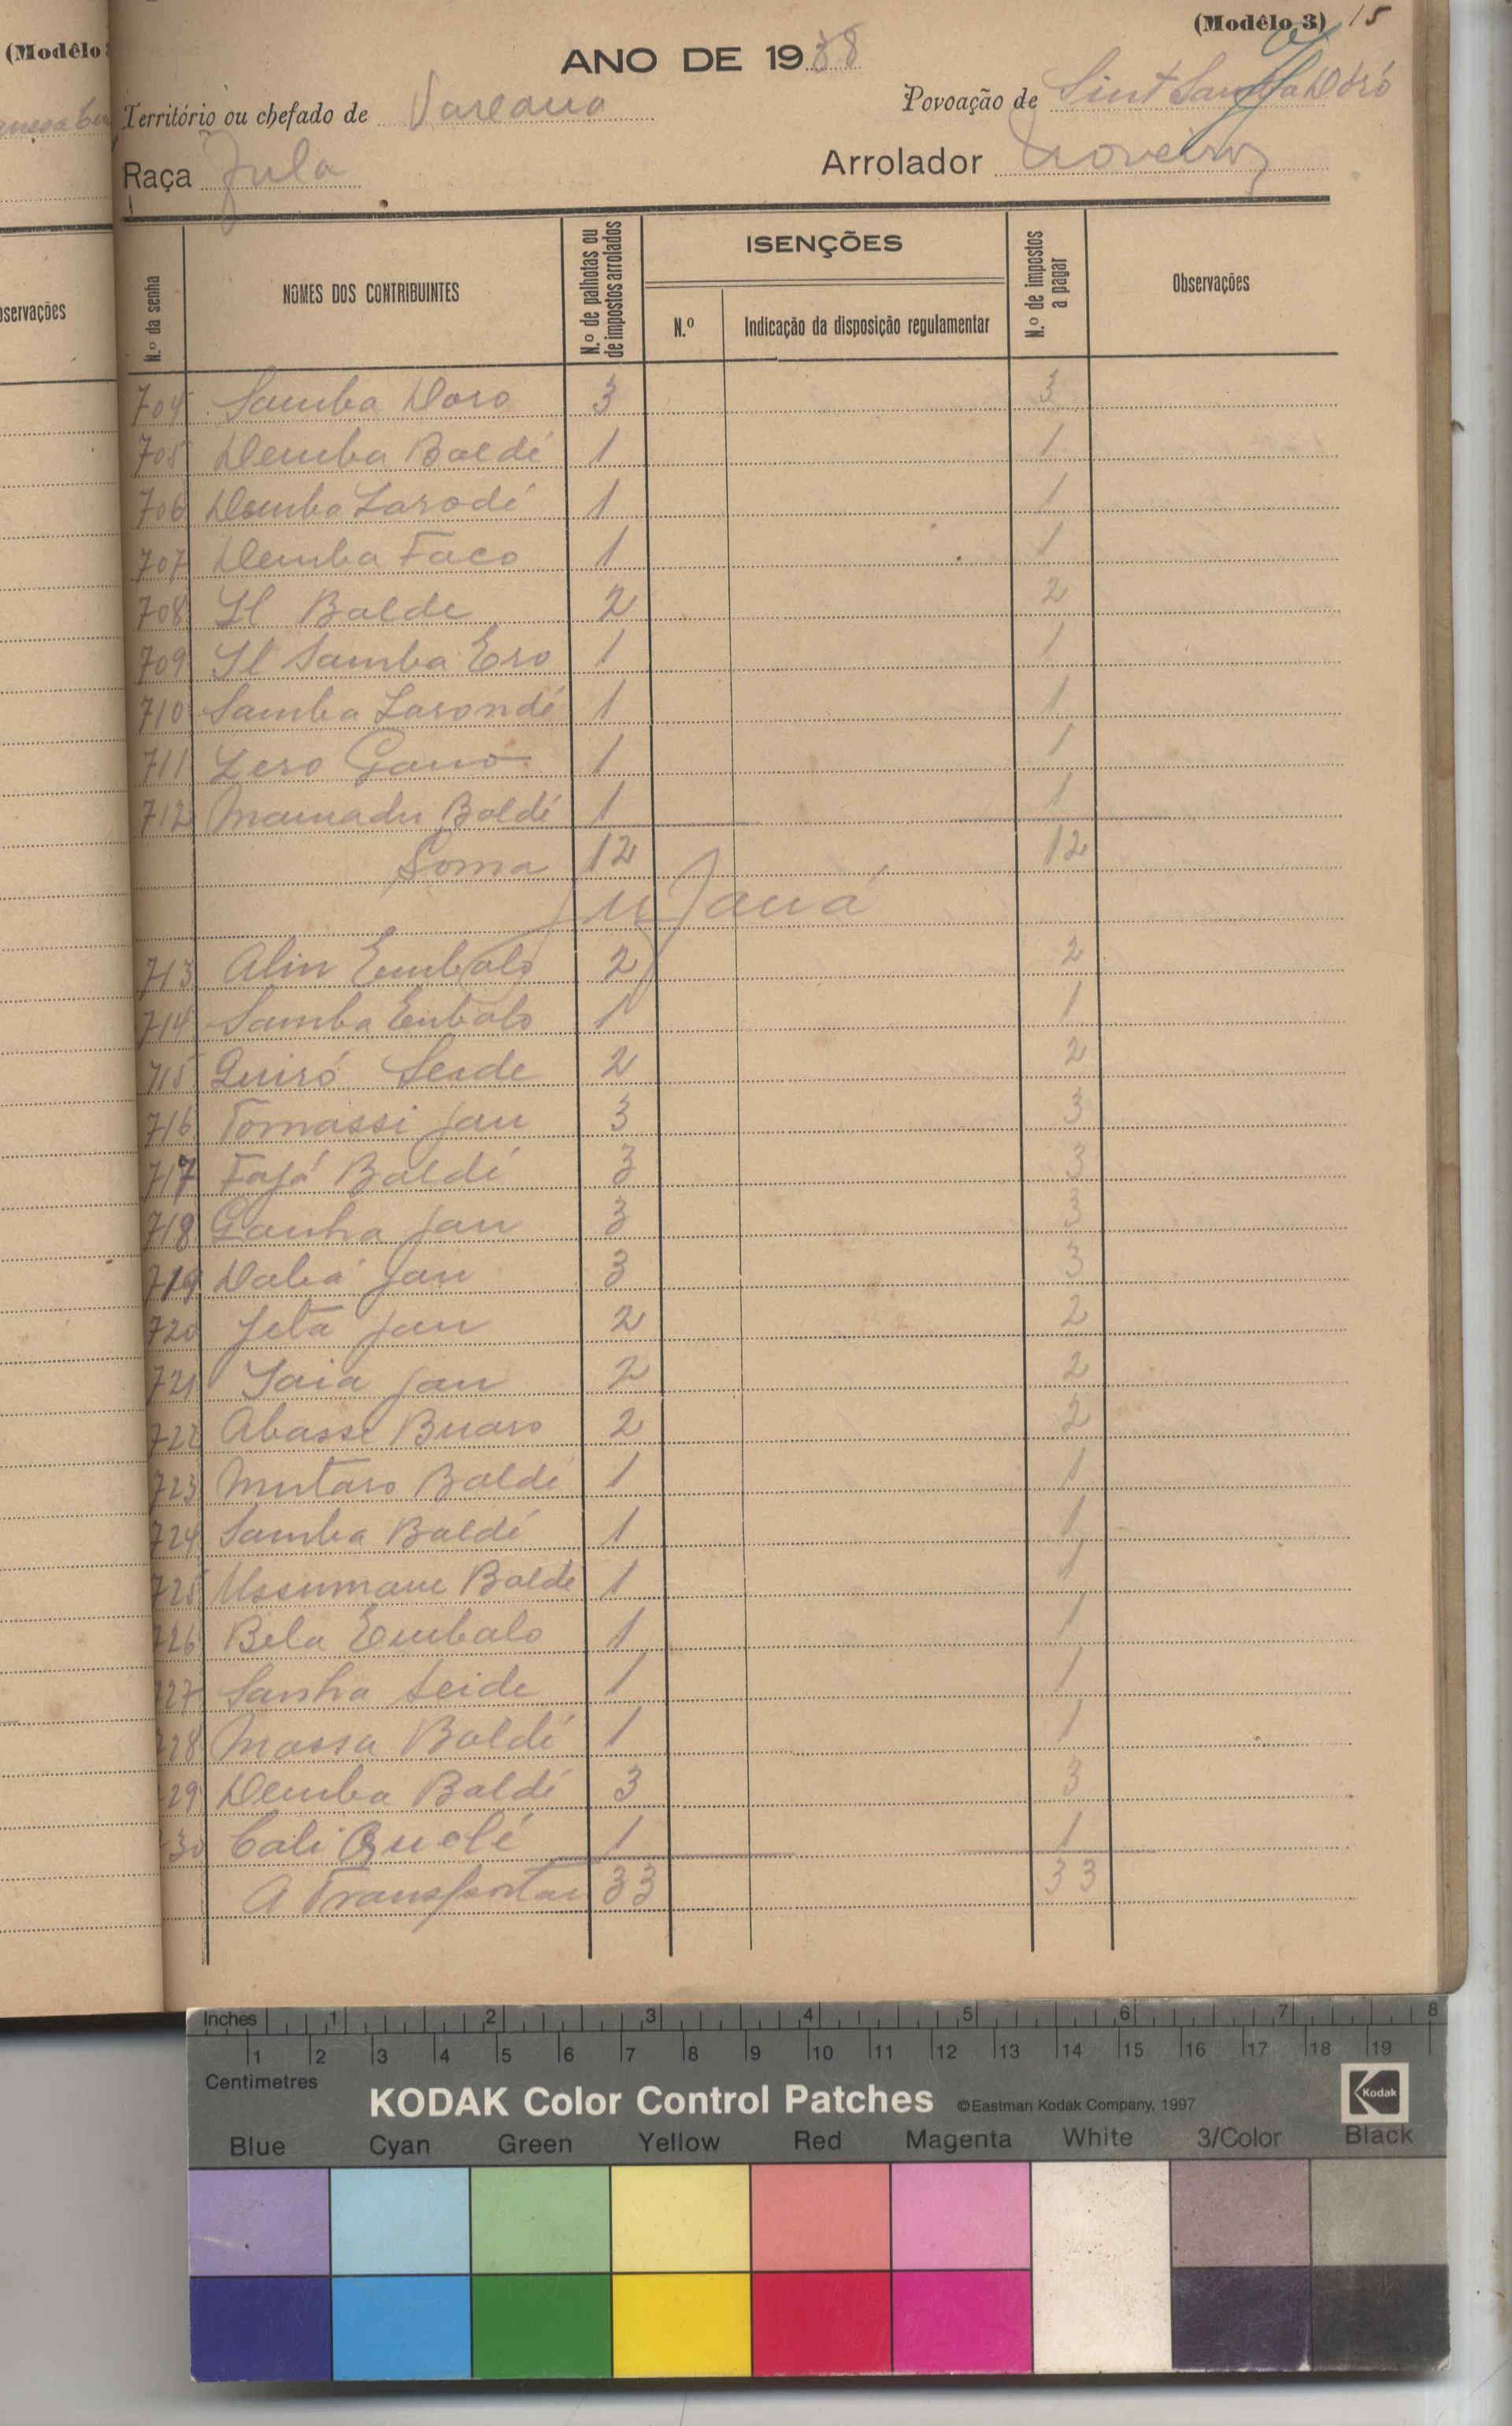 (Modêlo 3) 15
ANO DE 1938
Território ou chefado de
Povoação de Sint Samba Dóró
Raça Fula
Arrolador
N.º da senha
NOMES DOS CONTRIBUINTES
N.º de palhotas ou de impostos arrolados
ISENÇÕES
N.º
Indicação da disposição regulamentar
N.º de impostos a pagar
Observações
704 Samba Doro 3 3
705 Demba Baldé 1 1
706 Demba Larodé 1 1
707 Demba Faco 1 1
708 Il Balde 2 2
709 Il Samba Ero 1 1
710 Samba Larondé 1 1
711 Lero Gano 1 1
712 Mamadu Baldé 1 1
Soma 12 12
713 Alin Embalo 2 2
714 Samba Enbalo 1 1
715 Quiró Seade 2 2
716 Tomassi Jau 3 3
717 Fajá Baldé 3 3
718 Ganha Jau 3 3
719 Dabá Jau 3 3
720 Jeta Jau 2 2
721 Saia Jau 2 2
722 Abasse Buaro 2 2
723 Mutaro Baldé 1 1
724 Samba Baldé 1 1
725 Ussumane Baldé 1 1
726 Bela Embalo 1 1
727 Sanha Seide 1 1
728 Massa Baldé 1 1
729 Demba Baldé 3 3
730 Cali Quelé 1 1
A Transportar 33 33
(Modêlo
servações
Inches 1 2 3 4 5 6 7 8
1 2 3 4 5 6 7 8 9 10 11 12 13 14 15 16 17 18 19
Centimetres
KODAK Color Control Patches ©Eastman Kodak Company, 1997 Kodak
Blue Cyan Green Yellow Red Magenta White 3/Color Black